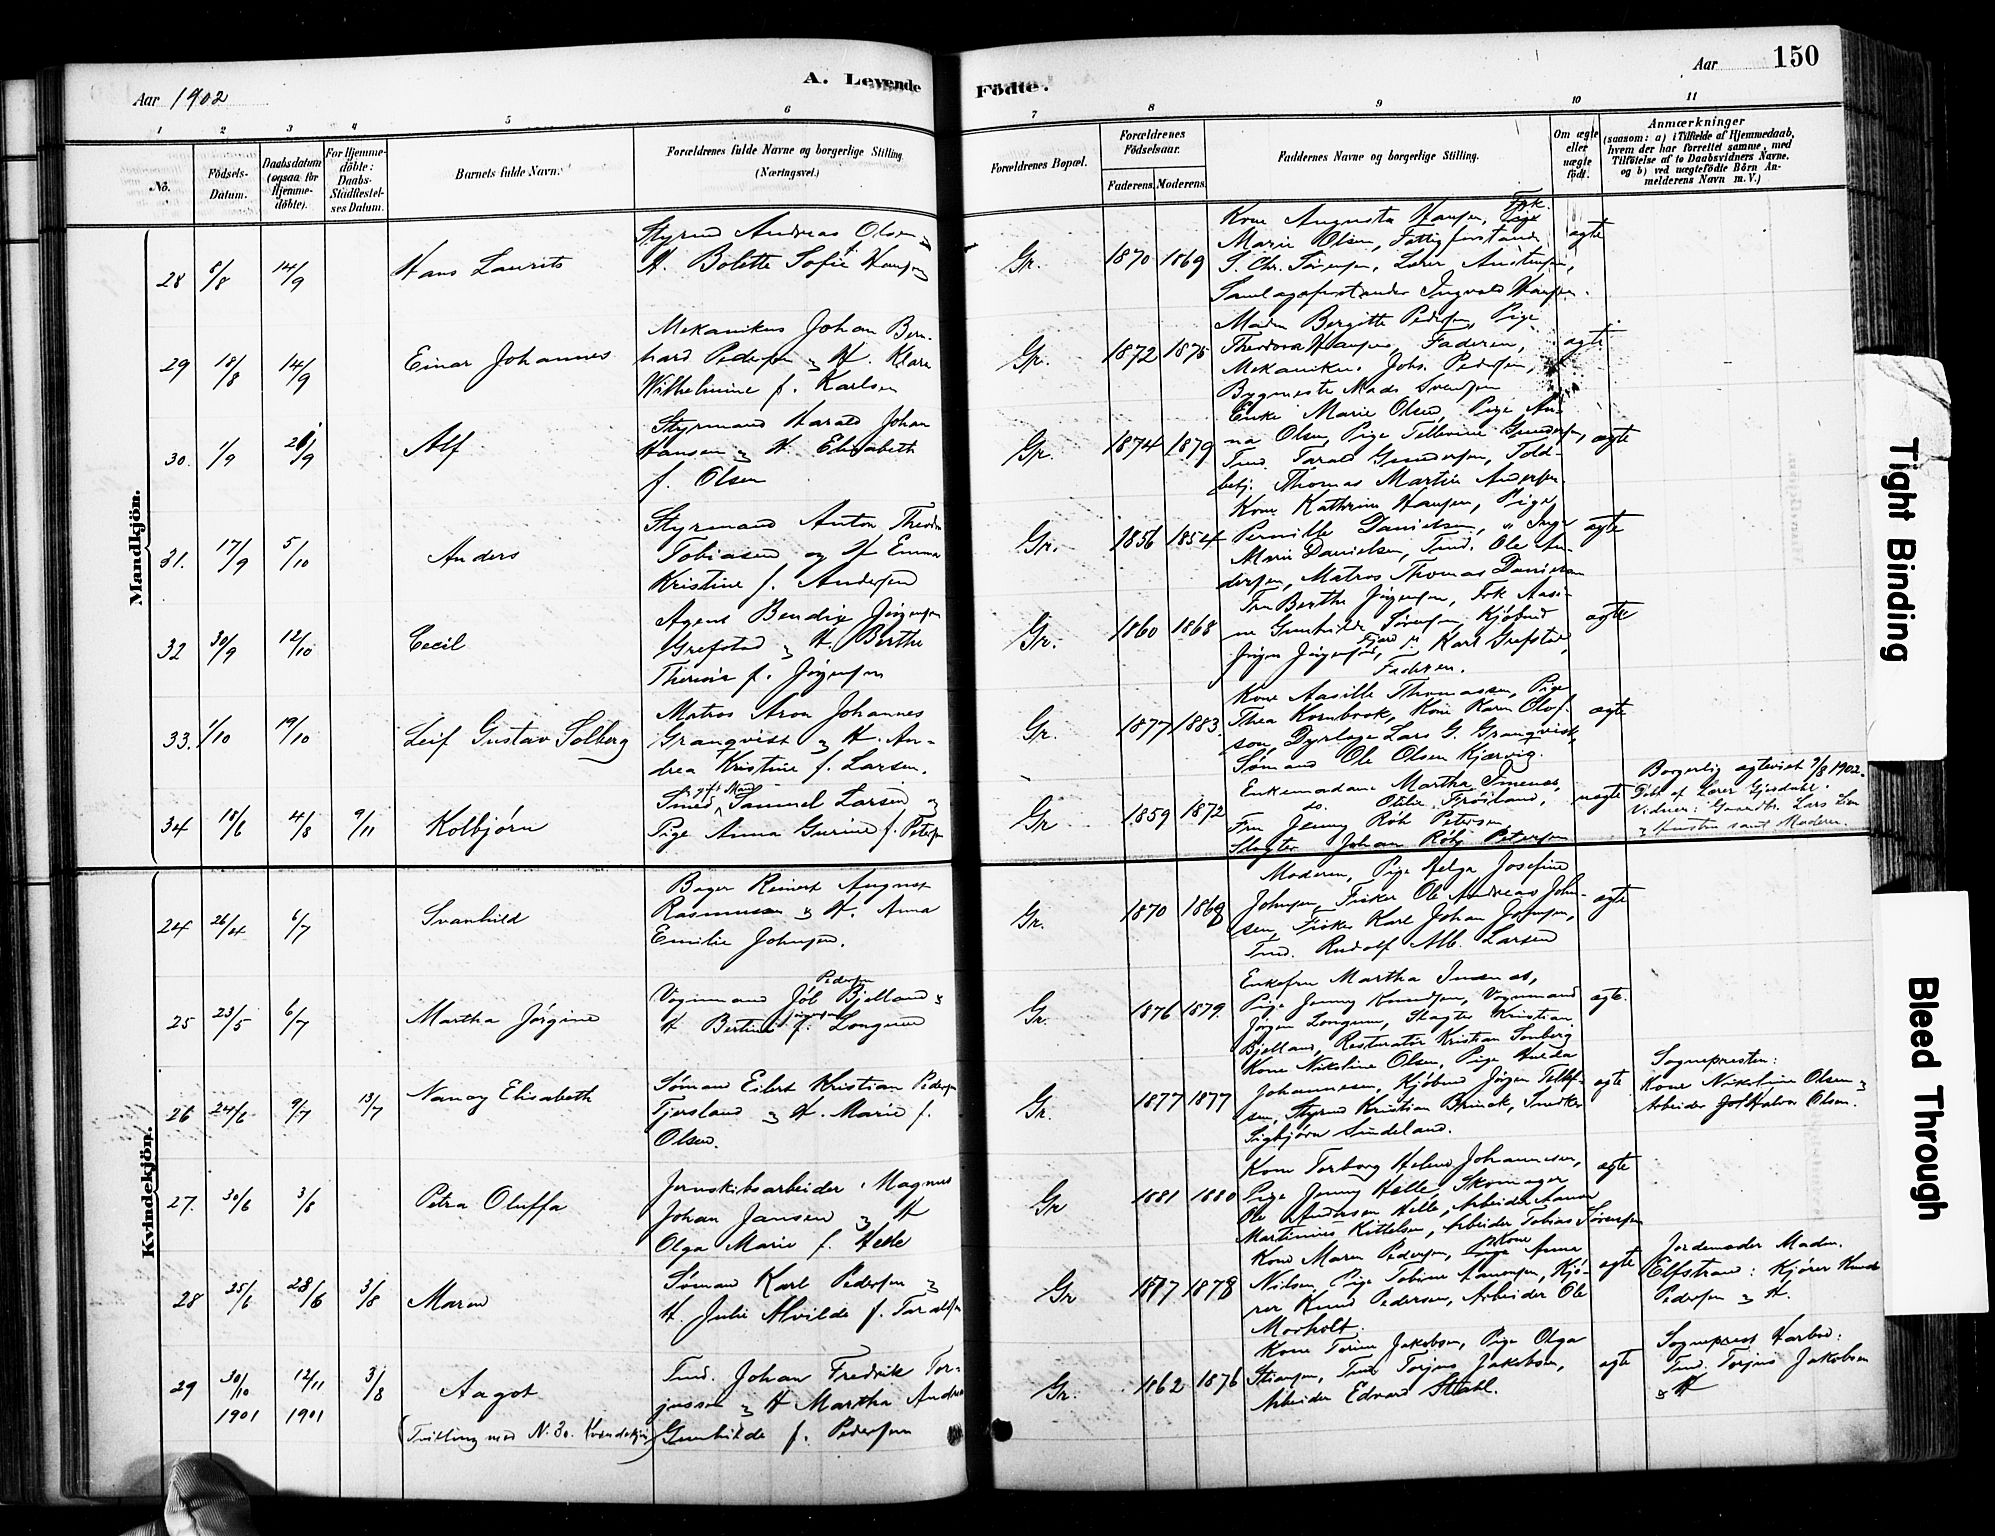 Aar 1902
A. Levende
Födte.
Aar
150
1 2 3 4 5 6 7 8 9 10 11
No.
Födsels-
Datum.
Daabsdatum
(ogsaa for
Hjemme-
döbte).
For Hjemme-
döbte:
Daabs-
Stadfæstel-
ses Datum.
Barnets fulde Navn.
Forældrenes fulde Navne og borgerlige Stilling
(Næringsvei.)
Forældrenes Bopæl.
Forældrenes
Födselsaar.
Faderens. Moderens.
Faddernes Navne og borgerlige Stilling.
Om ægte
eller
uægte
født.
Anmærkninger
(saasom: a) i Tilfælde af Hjemmedaab,
hvem der har forrettet samme, med
Tilföielse af to Daabsvidners Navne.
og b) ved uægtefödte Börn An-
melderens Navn m. V.)
Mandkjön.
28 8/8 14/9
Hans Laurits
Styrmd Andreas Olsen &
H. Bolette Sofie f. Hansen
Gr. 1870 1869
Kone Augusta Hansen, Frk.
Marie Olsen, Fattigforstander
S. Chr. Sørensen, Lærer Austensen,
Samlagsforstander Ingvald Hansen.
ægte
29 18/8 14/9
Einar Johannes
Mekanikus Johan Bern-
hard Pedersen & H. Klara
Wilhelmine f. Karlsen
Gr. 1872 1875
Madm Bergitte Pedersen, Pige
Theodora Hansen, Faderen,
Mekanikus Johs. Pedersen,
Bygmester Mads Svensen
ægte
30. 1/9 21/9
Alf
Styrmand Harald Johan
Hansen & H. Elisabeth
f. Olsen
Gr. 1874 1879
Enke Marie Olsen, Pige An-
na Olsen, Pige Tellevine Gundersen,
Tmd. Tarald Gundersen, Told-
betj. Thomas Martin Andersen.
ægte
31. 17/9 5/10
Anders
Styrmand Anton Theodor
Tobiasen og H Emma
Kristine f. Andersen
Gr. 1856 1854
Kone Kathrine Hansen, Pige
Pernille Danielsen, " Inge
Marie Danielsen, Tmd. Ole An-
dersen, Matros Thomas Danielsen
ægte
32 30/9 12/10
Cecil
Agent Bendix Jörgensen
Grefstad & H. Berthe
Therese f. Jörgensen
Gr. 1860 1868
Fru Berthe Jörgensen, Frk Aasi-
ne Gunhilde Sörensen, Kjöbmd
Jörgen Jörgensen, Karl Grefstad,
Faderen.
ægte
33. 1/10 19/10
Leif Gustav Solberg
Matros Aron Johannes
Granqvist & H. An-
drea Kristine f. Larsen.
Gr. 1877 1883.
Kone Aasille Thomassen, Pige
Thea Kornbrok, Kone Karen Olof-
son, Dyrlæge Lars G. Granqvist,
Sömand Ole Olsen Kjærvig.
ægte
34 18/6 4/8 9/11
Kolbjörn
Smed, gift Mand Samuel Larsen og
Pige Anna Gurine f. Petersen
Gr 1859 1872
Enkemadame Martha Imenæs,
do. Otilie Fröisland,
Fru Jenny Röh Petersen
Slagter Johan Röhj Petersen
uægte
Borgerlig ægteviet 9/8 1902.
Döbt af Lærer Gjösdahl.
Vidner: Gaardbr. Lars Lien
& Hustru samt Moderen.
Kvindekjön.
24 26/4 6/7
Svanhild
Bager Reinert August
Rasmussen & H. Anna
Emilie Johnsen.
Gr. 1870 1868
Moderen, Pige Helga Josefine
Johnsen, Fisker Ole Andreas John-
sen, Fisker Karl Johan Johnsen,
Tmd. Rudolf Alb. Larsen
ægte
25 23/5 6/7
Martha Jörgine
Vognmand Job Pedersen Bjelland &
H Bertine Jörgensen f. Longum
Gr. 1876 1879.
Enkefru Martha Imenæs,
Pige Jenny Knudsen, Vognmand
Jörgen Longum, Slagter Kristian
Bjelland, Restauratör Kristian Sonberg
ægte.
26 24/6 9/7 13/7
Nancy Elisabeth
Sömand Eilert Kristian Pedersen
Tjersland & H. Marie f.
Olsen.
Gr. 1877 1877
Kone Nikoline Olsen, Pige Hulda
Johannesen, Kjöbmd Jörgen Tellef-
sen, Styrmd Kristian Brinck, Snedker
Sigbjörn Sundeland.
ægte
Sognepresten:
Kone Nikoline Olsen &
Arbeider Halvor Olsen.
27. 30/6 3/8
Petra Oluffa
Jernskibsarbeider Magnus
Johan Jansen & H
Olga Marie f. Helle
Gr 1881 1880
Kone Torborg Helene Johannesen,
Pige Jenny Helle, Skomager
Ole Andersen Helle, Arbeider Aanon
Martinius Kittelsen, Arbeider Tobias Sörensen
ægte
28 25/6 28/6 3/8
Maren
Sömand Karl Pedersen &
H. Julie Alvilde f. Taraldsen
Gr 1877 1878
Kone Maren Pedersen, Kone Anna
Nilsen, Pige Tobine Aanonsen, Kjö-
rer Knud Pedersen, Arbeider Ole
Morholt.
ægte
Jordemoder Madm.
Elfstrand: Kjörer Knud
Pedersen & H.
29 30/10 1901 12/11 1901 3/8
Aagot
(Tvilling med N. 30. Kvindekjön)
Tmd. Johan Fredrik Tor-
jussen & H Martha Andrea
Gunhilde f. Pedersen
Gr. 1862 1876
Kone Torine Jakobsen, Pige Olga
Stiansen, Tmd Torjus Jakobsen,
Arbeider Edvard Stahl.
ægte
Sogneprest Harboe:
Tmd. Torjus Jakobsen
& H
Tight Binding
Bleed Through